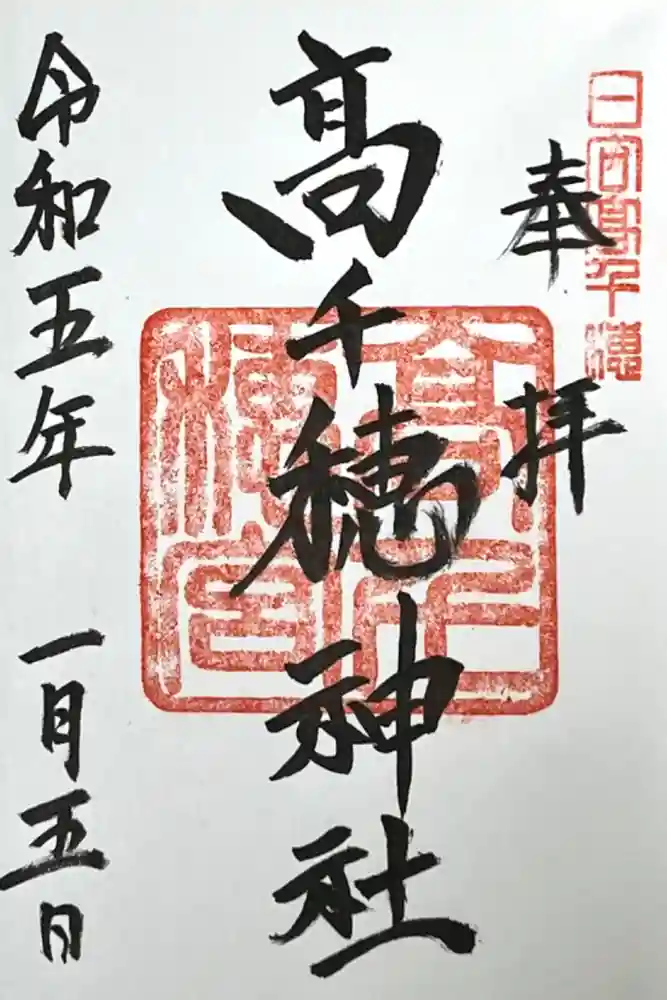 日向高千穂
奉拝
高千穂神社
高千穂宮
令和五年 一月五日